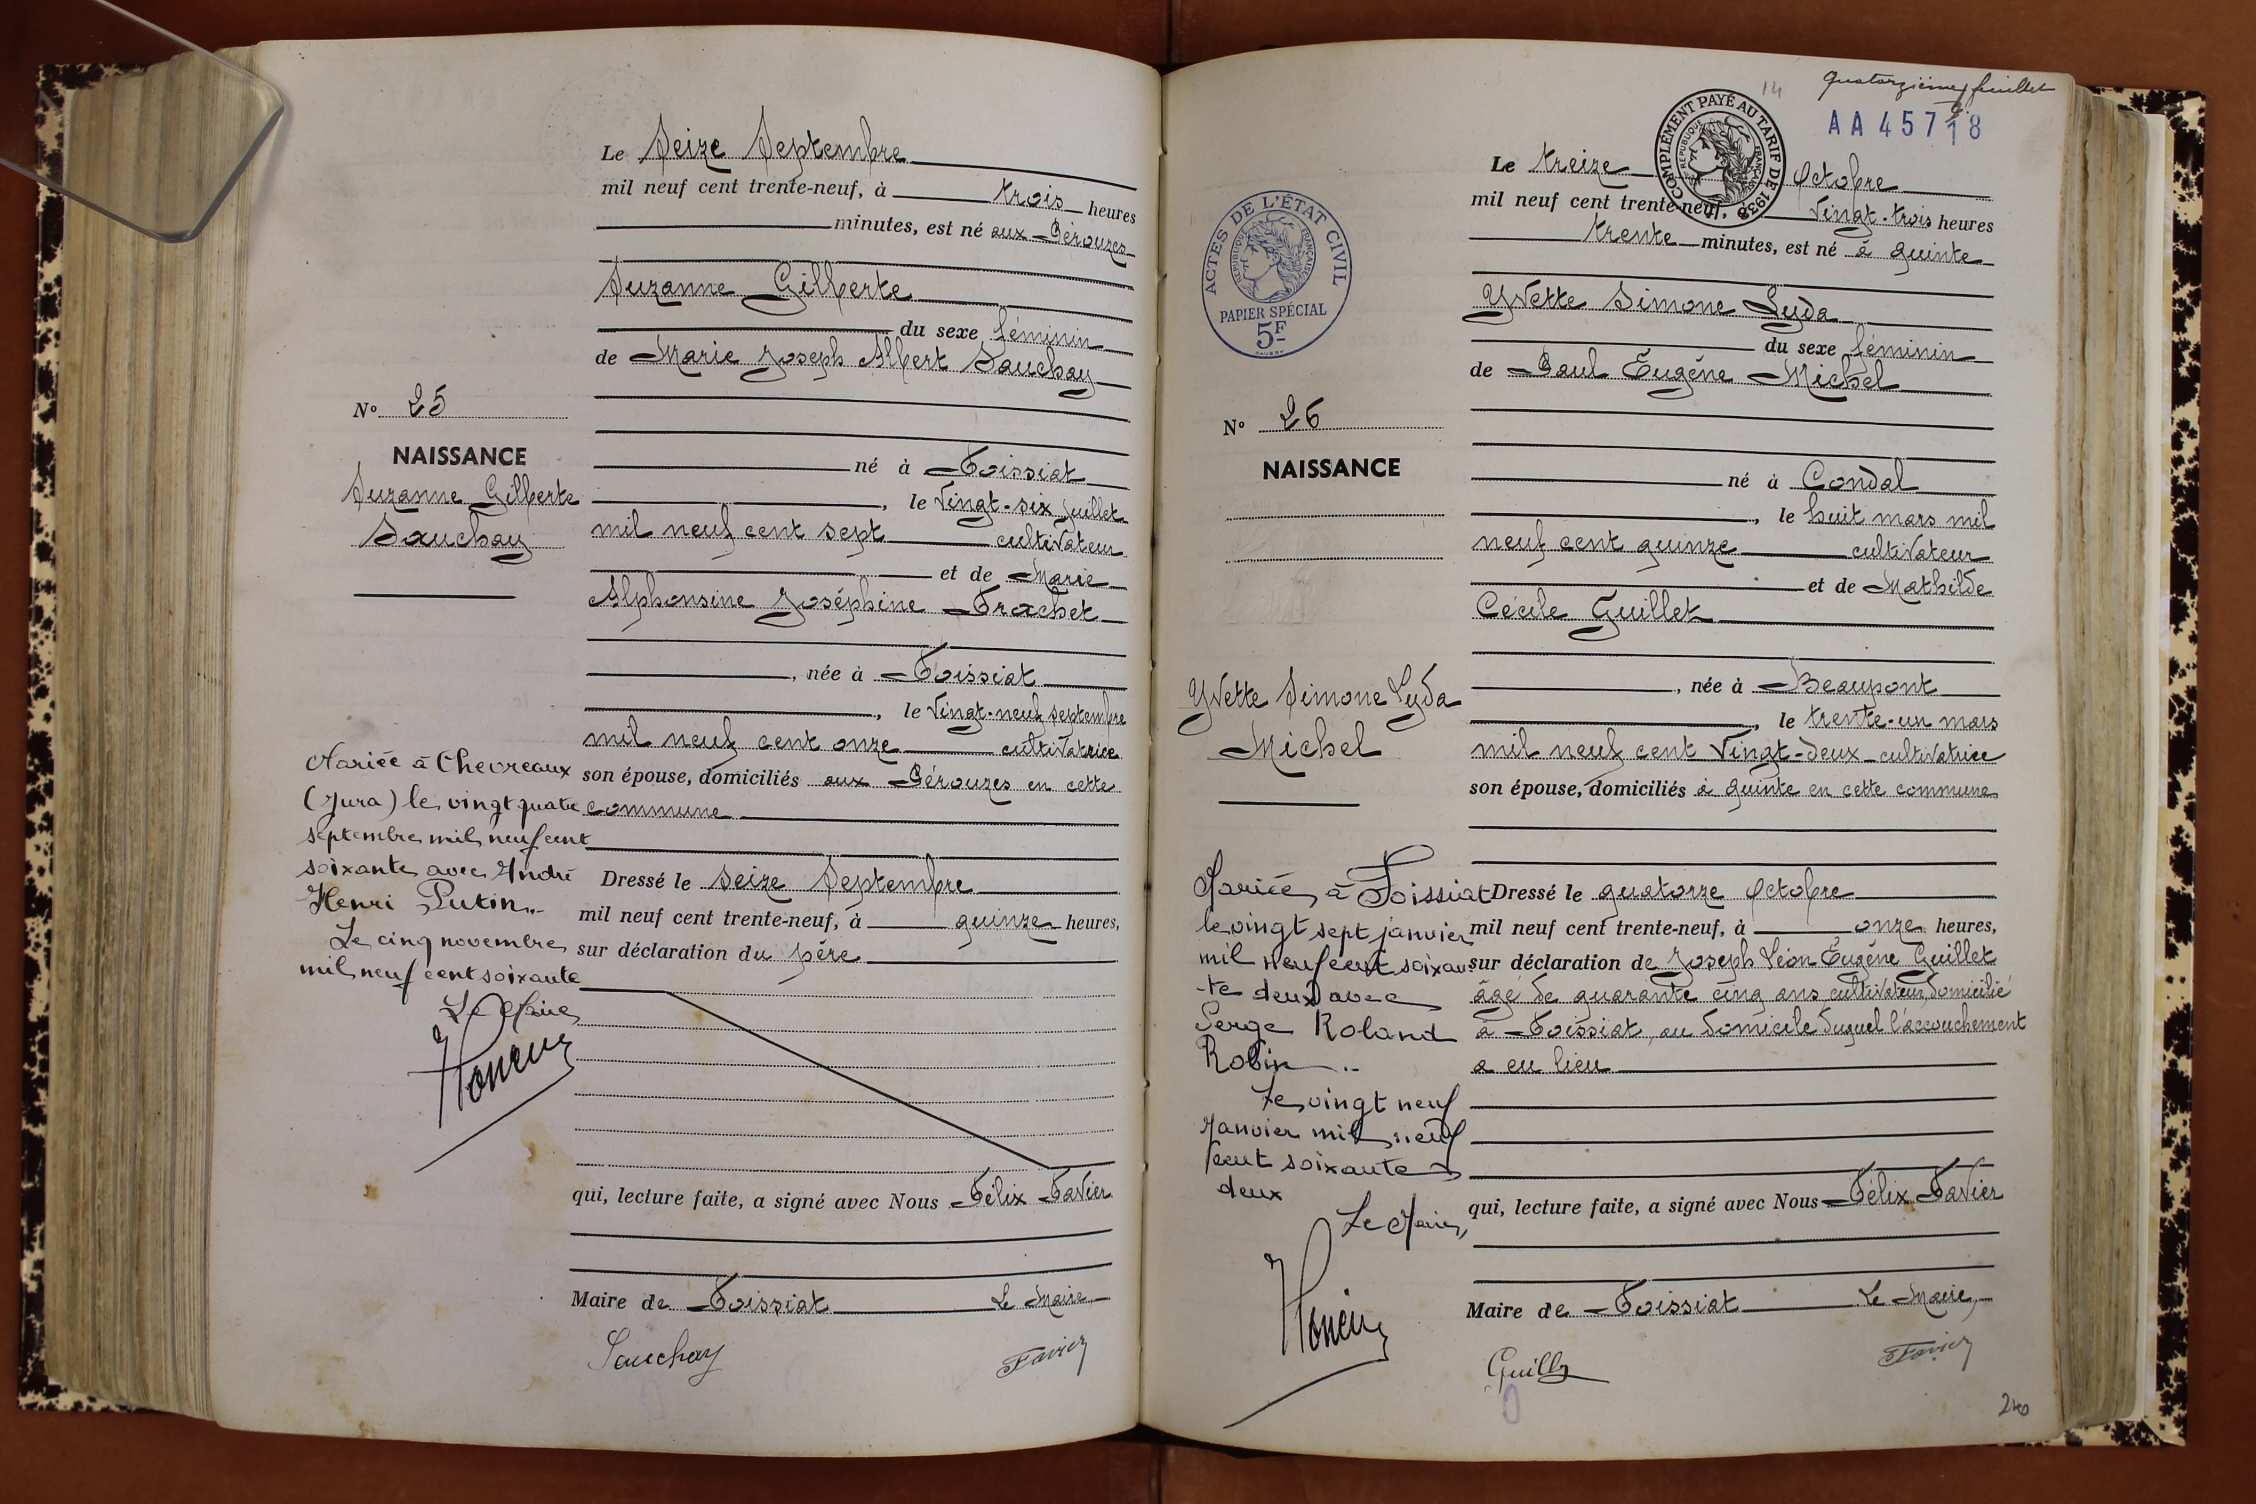 Le Seize Septembre
mil neuf cent trente-neuf, à trois heures
minutes, est né aux Pérouzes
Suzanne Gilberte
du sexe féminin
de Marie Joseph Albert Sauchay
N° 25
né à Foissiat
NAISSANCE
Suzanne Gilberte
Sauchay
, le Vingt-six juillet
mil neuf cent sept cultivateur
et de Marie
Alphonsine Joséphine Frachet
, née à Foissiat
, le Vingt-neuf septembre
mil neuf cent onze cultivatrice
son épouse, domiciliés aux Pérouzes en cette
commune
Mariée à Chevreaux
(Jura) le vingt quatre
septembre mil neuf cent
soixante avec André
Henri Putin..
Le cinq novembre
mil neuf cent soixante
Le Maire
Dressé le seize Septembre
mil neuf cent trente-neuf, à quinze heures,
sur déclaration du père
qui, lecture faite, a signé avec Nous Félix Favier
Maire de Foissiat Le Maire
Sauchay Favier
14 Quatorzième feuillet
AA 45718
COMPLÉMENT PAYÉ AU TARIF DE 1938
RÉPUBLIQUE FRANÇAISE
Le treize Octobre
mil neuf cent trente-neuf, à Vingt-trois heures
trente minutes, est né à Quinte
ACTES DE L'ÉTAT CIVIL
RÉPUBLIQUE FRANÇAISE
PAPIER SPÉCIAL
5F
Yvette Simone Lyda
du sexe féminin
de Paul Eugène Michel
N° 26
NAISSANCE
né à Condal
, le huit mars mil
neuf cent quinze cultivateur
et de Mathilde
Cécile Guillet
Yvette Simone Lyda
Michel
, née à Beaupont
, le trente-un mars
mil neuf cent Vingt-deux cultivatrice
son épouse, domiciliés à Quinte en cette commune
Mariée à Foissiat
le vingt sept janvier
mil neuf cent soixan
-te deux avec
Serge Roland
Robin ..
Le vingt neuf
Janvier mil neuf
cent soixante
deux
Le Maire,
Dressé le quatorze Octobre
mil neuf cent trente-neuf, à onze heures,
sur déclaration de Joseph Léon Eugène Guillet
âgé de quarante cinq ans cultivateur, domicilié
à Foissiat, au domicile duquel l'accouchement
a eu lieu
qui, lecture faite, a signé avec Nous Félix Favier
Maire de Foissiat Le Maire,
Favier
240